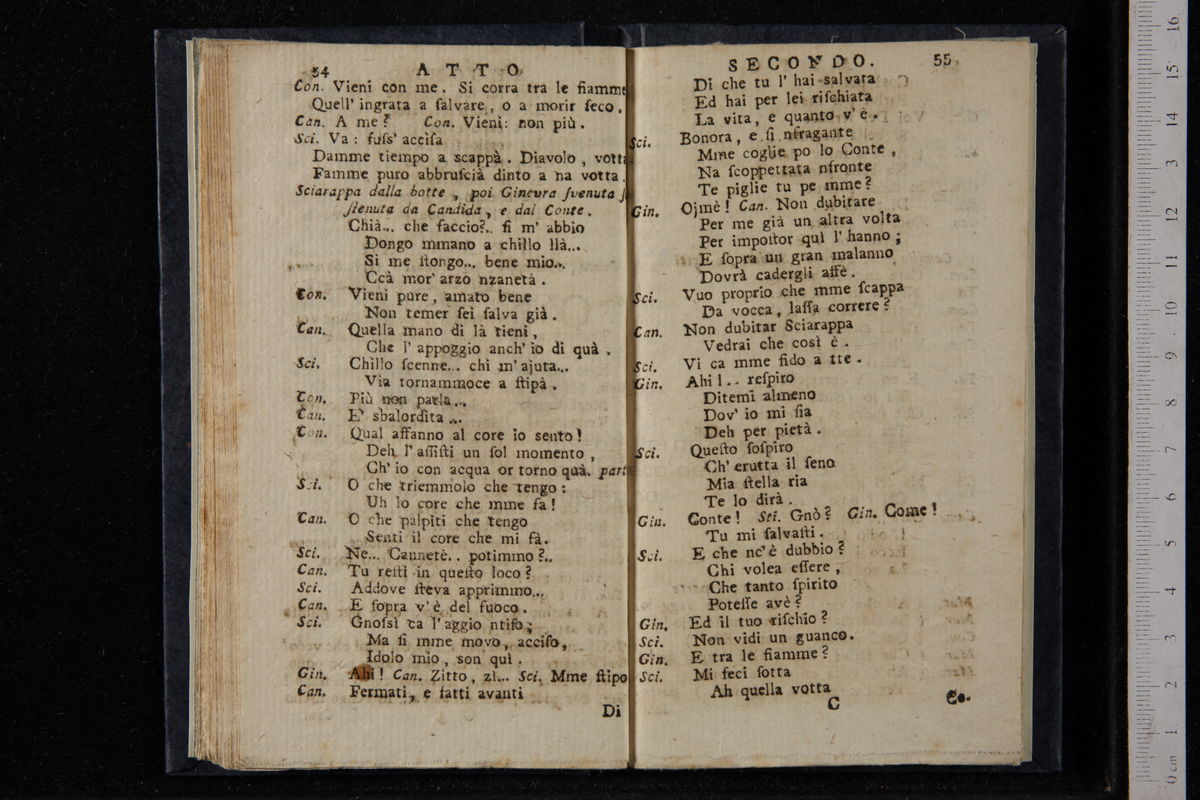 54 ATTO
Con. Vieni con me. Si corra tra le fiamme
Quell' ingrata a ſalvare, o a morir ſeco.
Can. A me? Con. Vieni: non più.
Sci. Va: fuſs' acciſa
Damme tiempo a scappà. Diavolo, votta
Famme puro abbruſcià dinto a na votta.
Sciarappa dalla botte, poi Ginevra ſvenuta ſo
ſtenuta da Candida, e dal Conte.
Chià... che faccio?.. ſi m' abbio
Dongo mmano a chillo llà...
Si me ſtongo... bene mio...
Ccà mor' arzo nzanetà.
Con. Vieni pure, amato bene
Non temer ſei ſalva già.
Can. Quella mano di là tieni,
Che l' appoggio anch' io di quà.
Sci. Chillo ſcenne... chi m' ajuta...
Via tornammoce a ſtipà.
Con. Più non parla...
Can. E' sbalordita...
Con. Qual affanno al core io sento!
Deh l' aſſiſti un ſol momento,
Ch' io con acqua or torno quà. parte
Sci. O che triemmolo che tengo:
Uh lo core che mme fa!
Can. O che palpiti che tengo
Senti il core che mi fà.
Sci. Ne... Cannetè.. potimmo?..
Can. Tu reſti in queſto loco?
Sci. Addove ſteva apprimmo...
Can. E ſopra v' è del fuoco.
Sci. Gnoſsì ca l' aggio ntiſo;
Ma ſi mme movo, acciſo,
Idolo mio, son quì.
Gin. Ahi! Can. Zitto, zì... Sci. Mme ſtipo
Can. Fermati, e fatti avanti
Di
SECONDO. 55
Di che tu l' hai salvata
Ed hai per lei riſchiata
La vita, e quanto v' è.
Sci. Bonora, e ſi nfragante
Mme coglie po lo Conte,
Na ſcoppettata nfronte
Te piglie tu pe mme?
Gin. Ojmè! Can. Non dubitare
Per me già un altra volta
Per impoſtor quì l' hanno;
E ſopra un gran malanno
Dovrà cadergli affè.
Sci. Vuo proprio che mme ſcappa
Da vocca, laſſa correre?
Can. Non dubitar Sciarappa
Vedrai che così è.
Sci. Vi ca mme fido a tte.
Gin. Ahi!.. reſpiro
Ditemi almeno
Dov' io mi ſia
Deh per pietà.
Sci. Queſto ſoſpiro
Ch' erutta il ſeno
Mia ſtella ria
Te lo dirà.
Gin. Conte! Sci. Gnò? Gin. Come!
Tu mi ſalvaſti.
Sci. E che nc' è dubbio?
Chi volea eſſere,
Che tanto ſpirito
Poteſſe avè?
Gin. Ed il tuo riſchio?
Sci. Non vidi un guanco.
Gin. E tra le fiamme?
Sci. Mi feci ſotta
Ah quella votta
C Co.